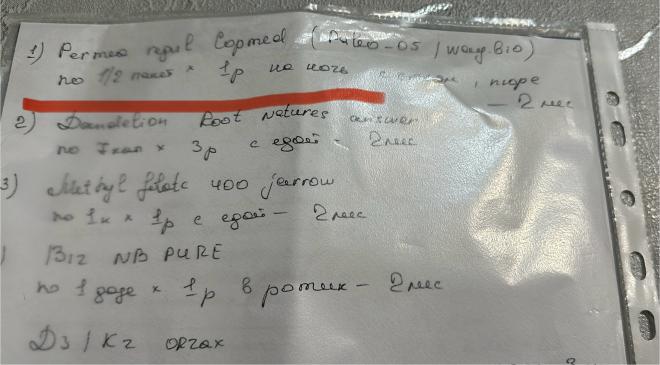 1) Permea regul Copmed (Paleo-05 / Wang.bio)
по 1/2 пакет × 1р на ночь с , пюре
— 2 мес
2) Dandelion Root Natures answer
по 7кап × 3р с едой — 2мес
3) Methyl folate 400 jarrow
по 1к × 1р с едой — 2мес
B12 NB PURE
по 1 дозе × 1р в ротик — 2мес
D3 / K2 orzax